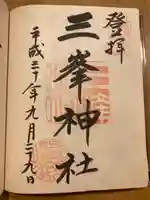 登拝
三峯神社
平成三十年九月二十九日